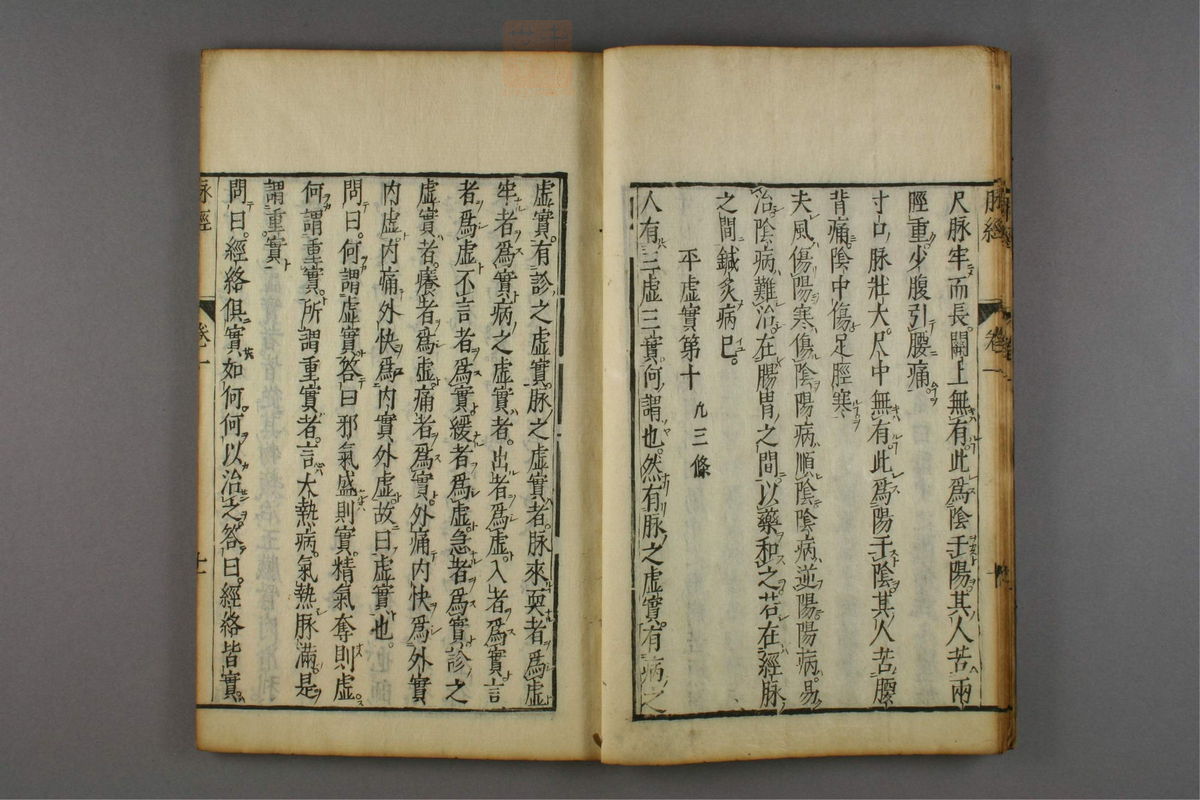 脉經 卷一 十
尺脉牢而長。關上無有。此爲陰干陽。其人苦兩
脛重。少腹引腰痛
寸口脉壯大。尺中無有。此爲陽干陰。其人苦腰
背痛。陰中傷。足脛寒
夫風傷陽。寒傷陰。陽病順陰。陰病逆陽。陽病易
治。陰病難治。在腸胃之間。以藥和之。若在經脉
之間。鍼灸病已。
平虛實第十 凡三條
人有三虛三實。何謂也。然有脉之虛實。有病之
虛實。有診之虛實。脉之虛實者。脉來耎者爲虛
牢者爲實。病之虛實者。出者爲虛。入者爲實。言
者爲虛。不言者爲實。緩者爲虛。急者爲實。診之
虛實者。癢者爲虛。痛者爲實。外痛內快。爲外實
内虛。内痛外快。爲内實外虛。故曰虛實也。
問曰。何謂虛實。答曰。邪氣盛則實。精氣奪則虛。
何謂重實。所謂重實者。言大熱病。氣熱脉滿。是
謂重實
問曰。經絡俱實。如何。何以治之。答曰。經絡皆實。
脉經 卷一 十一